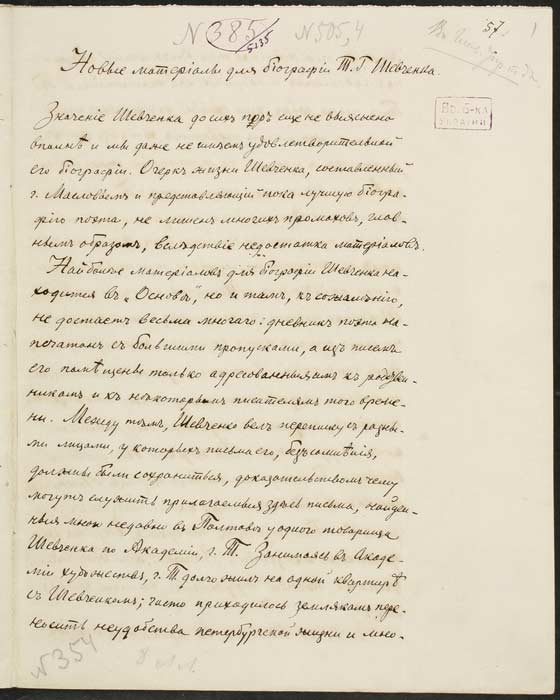 N 385 N 505,4 57 1
5135
Новые матеріалы для біографіи Т. Г. Шевченка.
Вс. б-ка
України
Значеніе Шевченка до сихъ поръ еще не выяснено
вполнѣ и мы даже не имѣемъ удовлетворительной
его біографіи. Очеркъ жизни Шевченка, составленный
г. Масловымъ и представляющій пока лучшую біогра-
фію поэта, не лишенъ многихъ промаховъ, глав-
нымъ образомъ, вслѣдствіе недостатка матеріаловъ.
Найболѣе матеріаловъ для біографіи Шевченка на-
ходится въ „Основѣ", но и тамъ, къ сожалѣнію,
не достаетъ весьма многаго: дневникъ поэта на-
печатанъ съ большими пропусками, а изъ писемъ
его помѣщены только адресованныя имъ къ родствен-
никамъ и къ нѣкоторымъ писателямъ того време-
ни. Между тѣмъ, Шевченко велъ переписку съ разны-
ми лицами, у которыхъ письма его, безъ сомнѣнія,
должны были сохраниться, доказательствомъ чему
могутъ служить прилагаемыя здѣсь письма, найден-
ныя мною недавно въ Полтавѣ у одного товарища
Шевченка по Академіи, г. Т. Занимаясь въ Акаде-
міи художествъ, г. Т. долго жилъ на одной квартирѣ
съ Шевченкомъ; часто приходилось землякамъ пере-
носить неудобства петербургской жизни и мно-
N 354